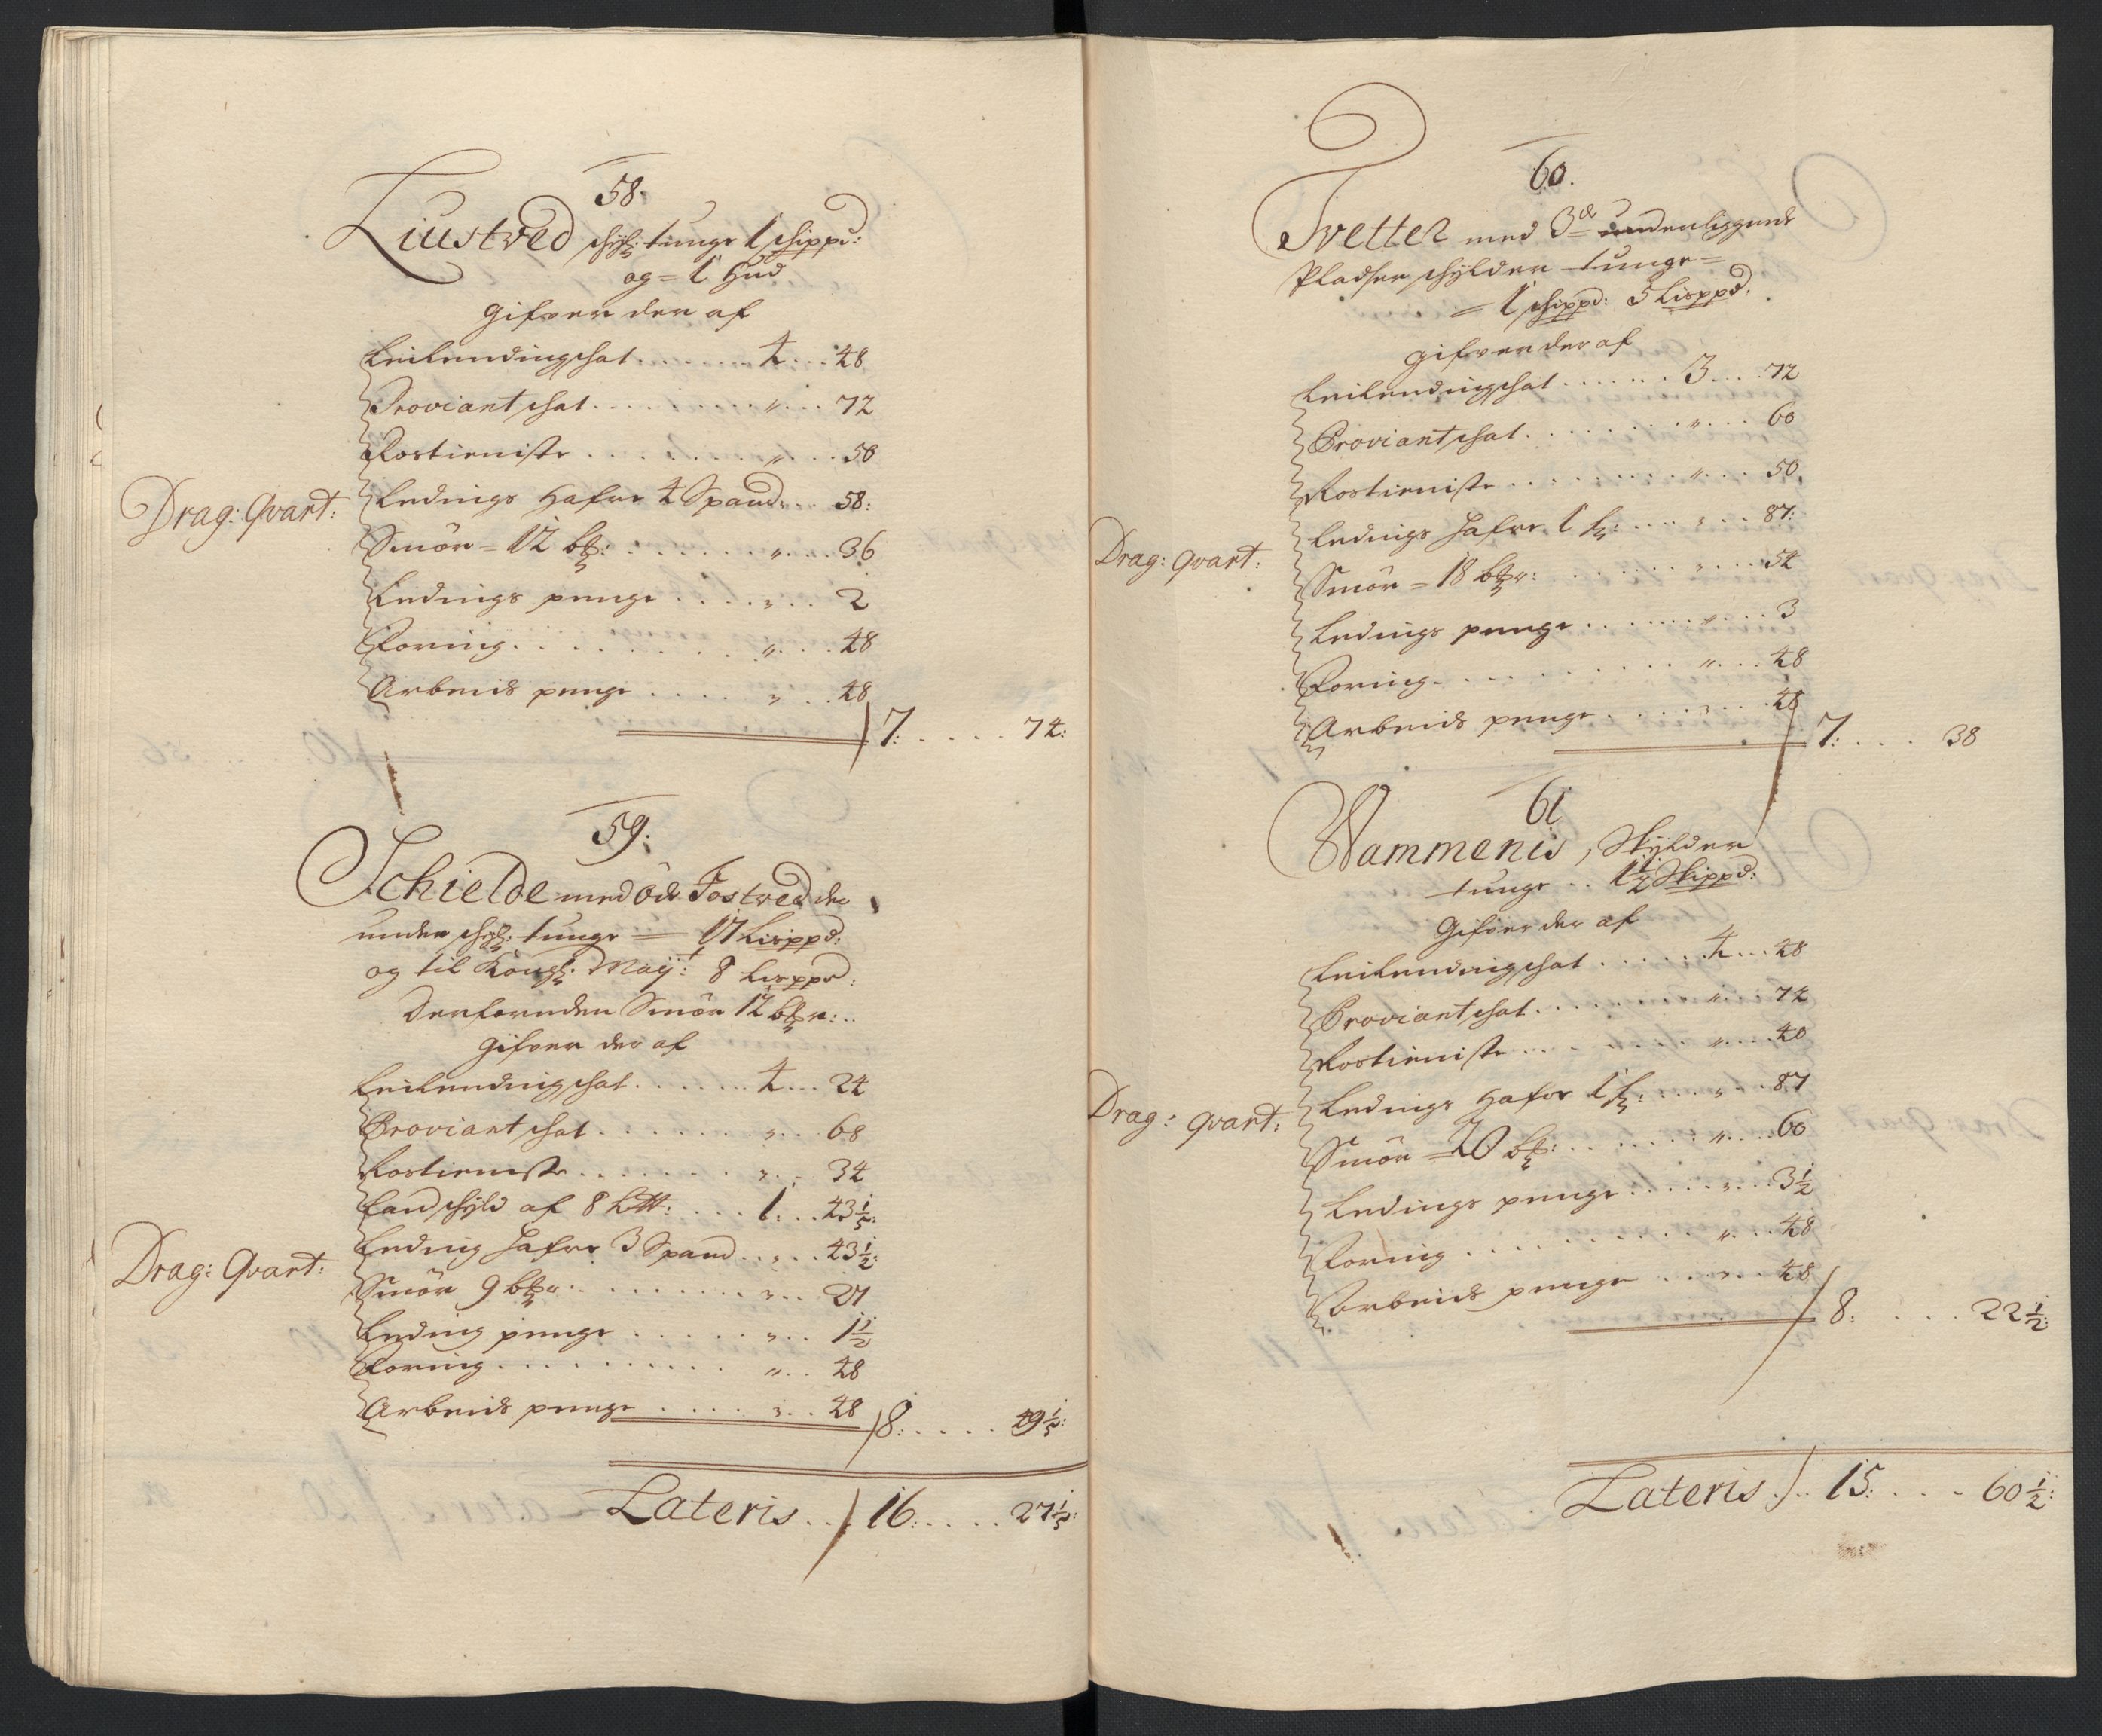 58.
Liustved schÿl: tunge 1 schippd:
og = 1 Hud
gifver der af
Leilendingschat . . . . . . . . 4 . . . 48
Proviantschat . . . . . . . . „ . . . 72
Rostieniste . . . . . . . „ . . . 50
Drag: Qvart: Ledings Hafre 4 Spand . . . 58:
Smör = 12 bß: . . . . . . . „ . . . 36
Ledings penge . . . . „ . . 2
Foring . . . . . . . . . „ . . . 48
Arbeids penge . . . . „ . . 48
7: . . . . 74:
59:
Schielde med Öde Fostved der
under schÿl: tunge = 17 Lisppd:
og til Kongl: Maÿt: 8 Lisppd:
Derforuden Smör 12 bßr: . .
gifver der af
Leilendingschat . . . . . . 4 . . . 24
Proviantschat . . . . . . . „ . . 68
Rostieniste . . . . . . . „ . . 34
Landschÿld af 8 L℔: . . . 1 . . . 43 1/5:
Drag: Qvart: Leding Hafre 3 Spand . . „ . . 43 1/2:
Smör 9 bßr . . . . . . . . „ . . 27
Leding penge . . . . . „ . . 1 1/2
Foring . . . . . . . . . . „ . . 48
Arbeids penge . . . . „ . . 48
8: . . . . 49 1/5:
Lateris . . 16: . . . . 27 1/5:
60.
Tvetter med 3de underliggende
Pladser schÿlder tunge =
= 1 schippd: 5 Lisppd.
gifver der af
Leilendingschat . . . . . . 3 . . . 72
Proviantschat . . . . . . . . „ . . . 60
Rostieniste . . . . . . . . . „ . . . 50
Drag: Qvart: Ledings Hafre 1 h: . . . „ . . . 87:
Smör = 18 bßr: . . . . . . . „ . . . 54
Ledings penge . . . . . . „ . . . 3
Foring . . . . . . . . . „ . . . 48
Arbeids penge . . . . „ . . . 48
7: . . . 38
61
Wammenis, Skÿlder
tunge . . 1 1/2 Skippd:
Gifver der af
Leilendingschat . . . . . . 4 . . . 48
Proviantschat . . . . . . . „ . . . 72
Rostieniste . . . . . . . . „ . . . 40
Drag: Qvart: Ledings Hafre 1 h: . . . „ . . . 87
Smör = 20 bß: . . . . . . . „ . . . 60
Ledings penge . . . . . „ . . . 3 1/2
Foring . . . . . . . . . . „ . . . 48
Arbeids penge . . . . „ . . . 48
8: . . . . 22 1/2:
Lateris . . 15: . . . 60 1/2: